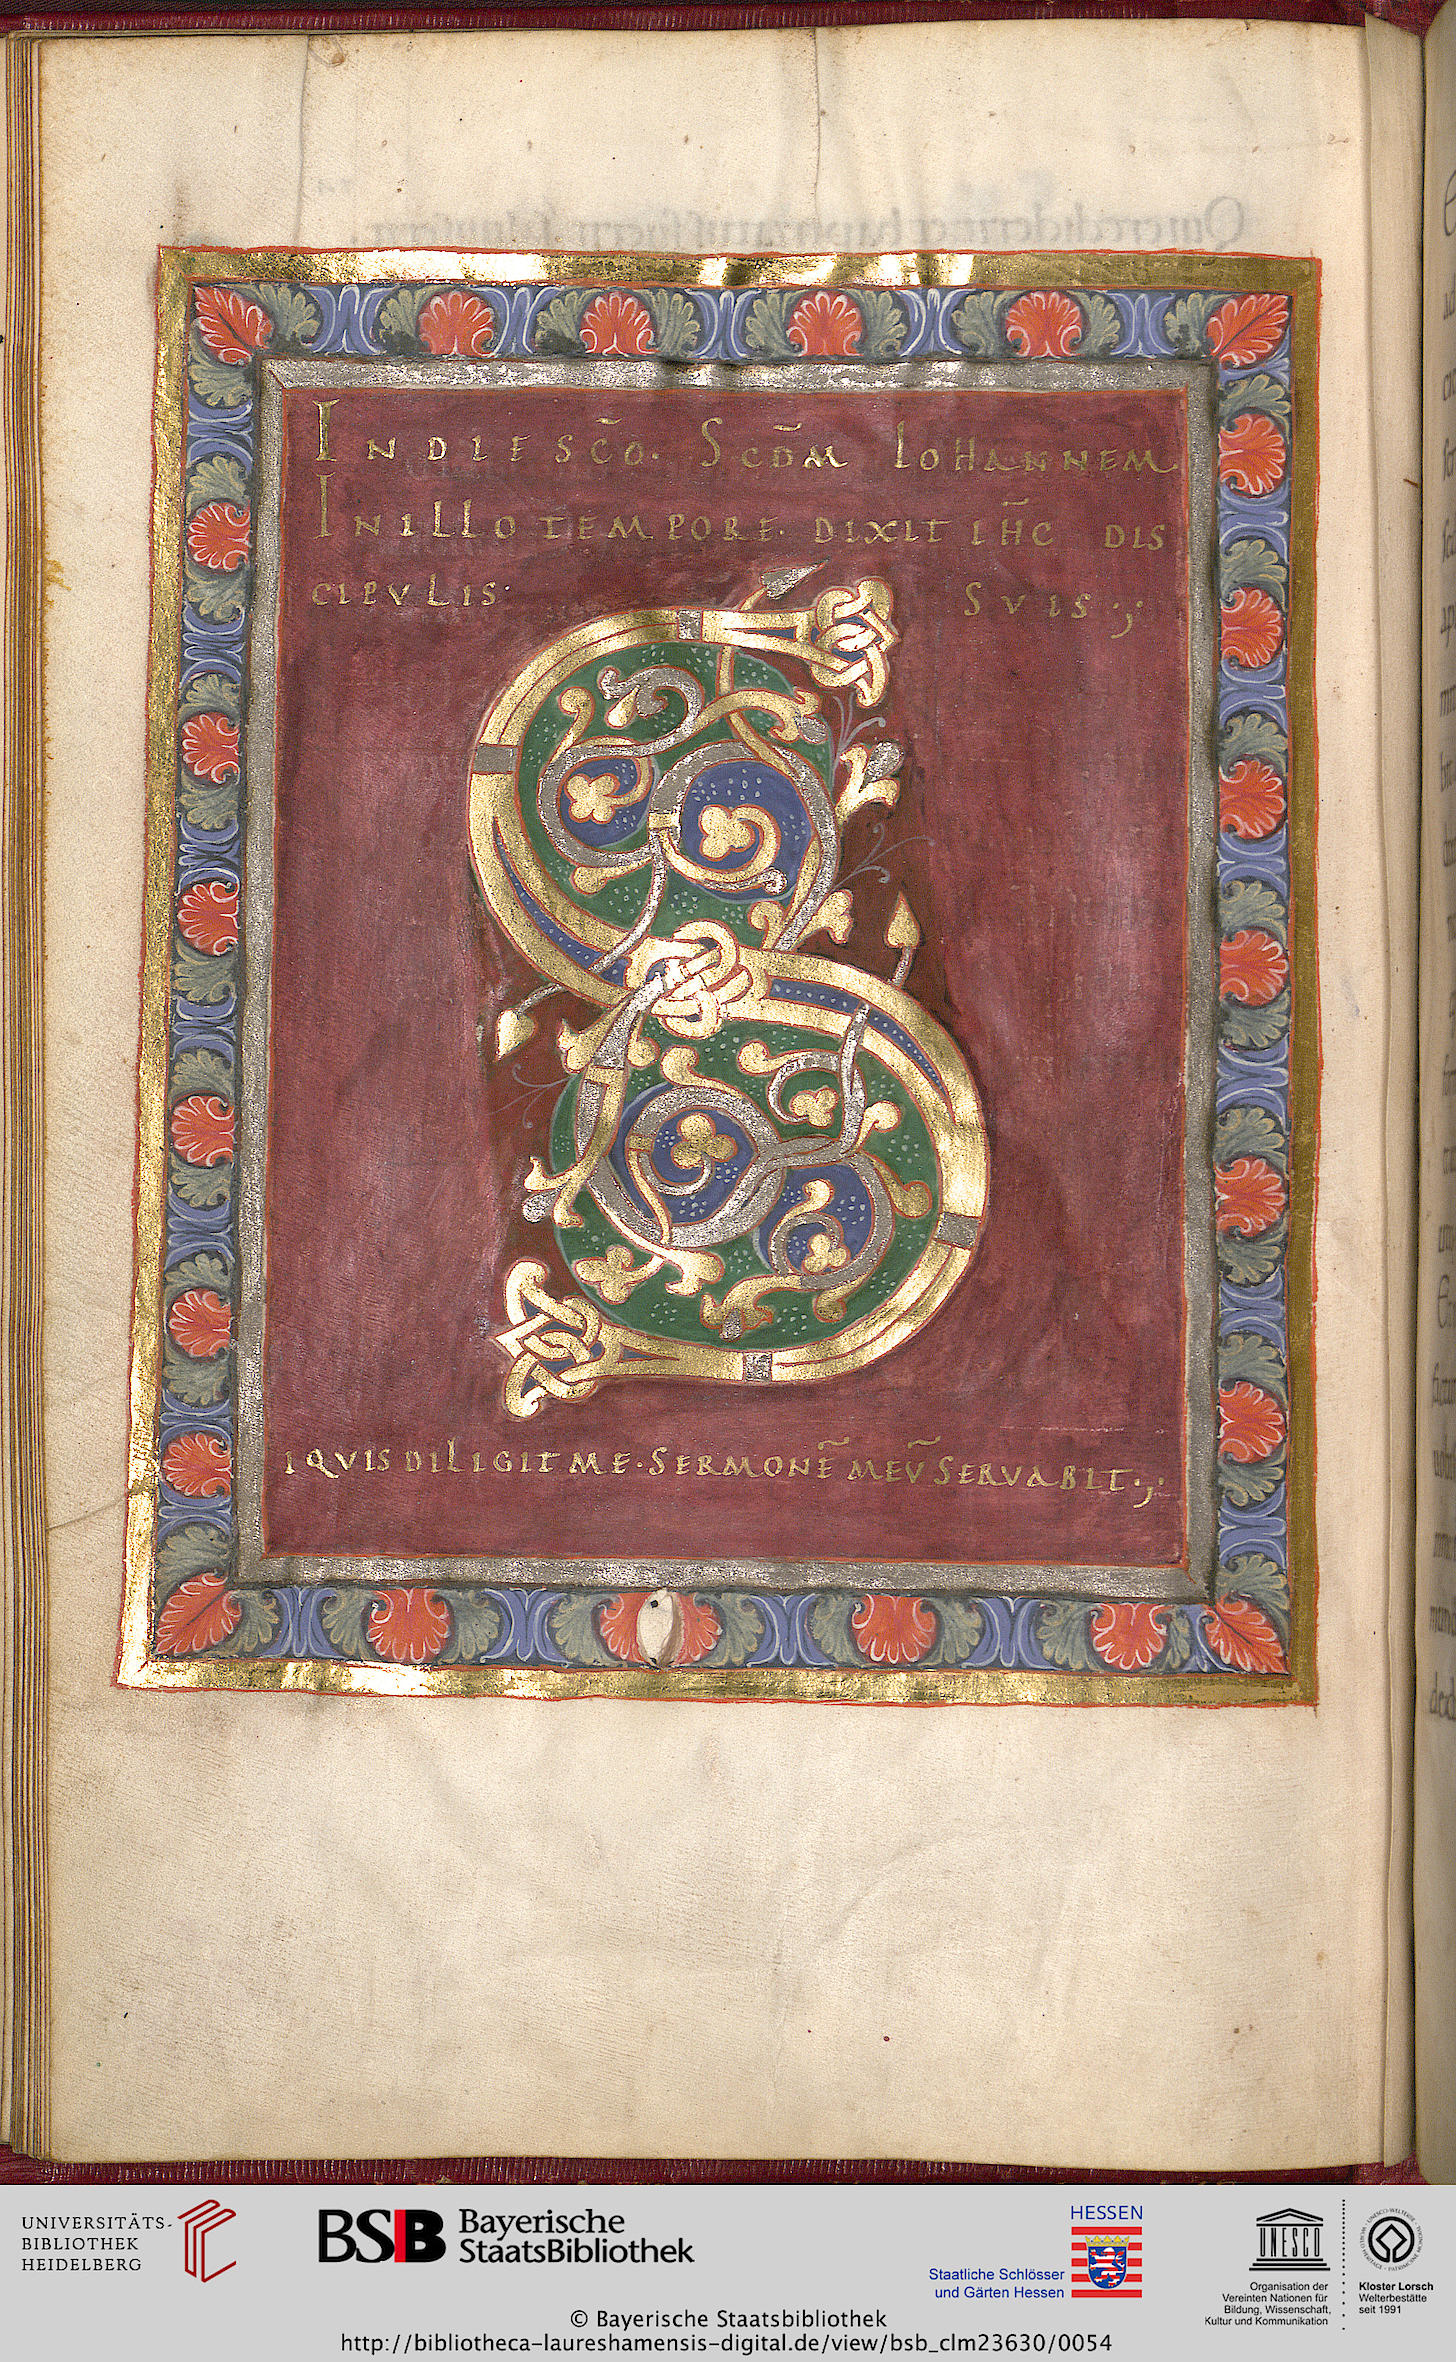 IN DIE SC̄O. SCD̄M IOHANNEM
IN ILLO TEMPORE. DIXIT IH̄C DIS
CIPVLIS. SVIS.;
S
IQVIS DILIGIT ME. SERMONĒ MEV̄ SERVABIT.;
UNIVERSITÄTS-
BIBLIOTHEK
HEIDELBERG
BSB Bayerische
StaatsBibliothek
HESSEN
Staatliche Schlösser
und Gärten Hessen
UNESCO
Organisation der
Vereinten Nationen für
Bildung, Wissenschaft,
Kultur und Kommunikation
Kloster Lorsch
Welterbestätte
seit 1991
© Bayerische Staatsbibliothek
http://bibliotheca-laureshamensis-digital.de/view/bsb_clm23630/0054